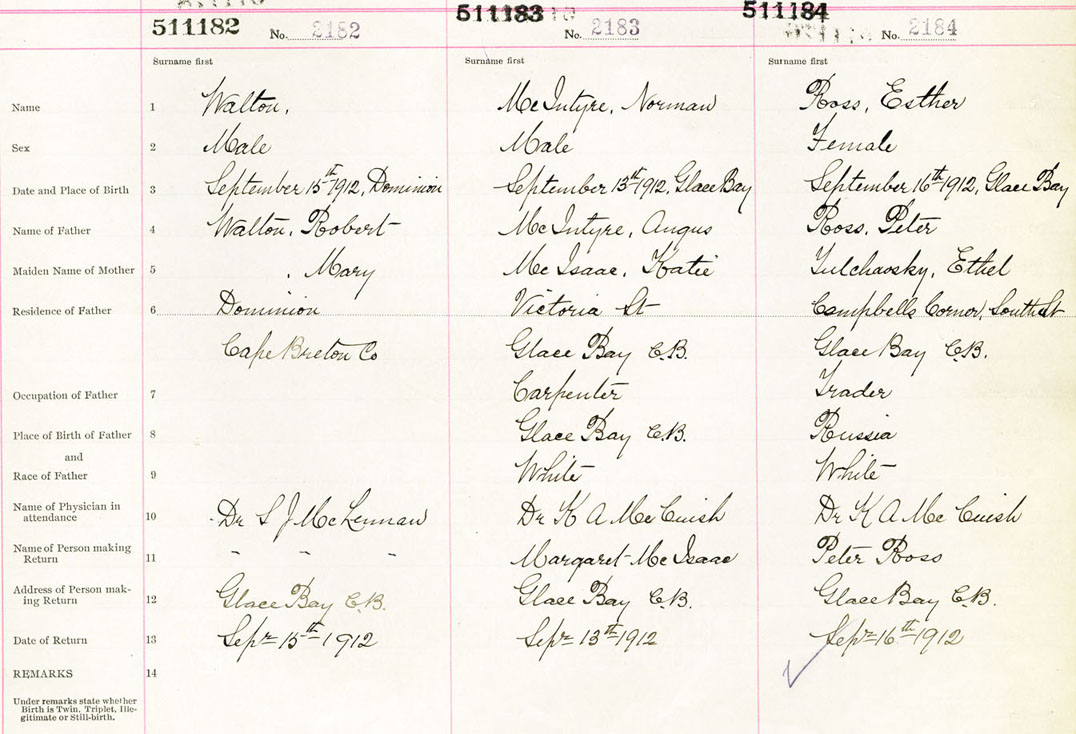 511182 No. 2182 511183 No. 2183 511184 No. 2184
Surname first Surname first Surname first
Name 1 Walton, McIntyre, Norman Ross, Esther
Sex 2 Male Male Female
Date and Place of Birth 3 September 15th 1912, Dominion September 13th 1912, Glace Bay September 16th 1912, Glace Bay
Name of Father 4 Walton, Robert McIntyre, Angus Ross, Peter
Maiden Name of Mother 5 , Mary McIsaac, Katie Tulchavsky, Ethel
Residence of Father 6 Dominion Victoria St Campbells Corner, South St
Cape Breton Co Glace Bay C.B. Glace Bay C.B.
Occupation of Father 7 Carpenter Trader
Place of Birth of Father 8 Glace Bay C.B. Russia
and
Race of Father 9 White White
Name of Physician in
attendance 10 Dr S J McLennan Dr K A McCuish Dr K A McCuish
Name of Person making
Return 11 " " " Margaret McIsaac Peter Ross
Address of Person mak-
ing Return 12 Glace Bay C.B. Glace Bay C.B. Glace Bay C.B.
Date of Return 13 Sepr 15th 1912 Sepr 13th 1912 Sepr 16th 1912
REMARKS 14
Under remarks state whether
Birth is Twin, Triplet, Ille-
gitimate or Still-birth.